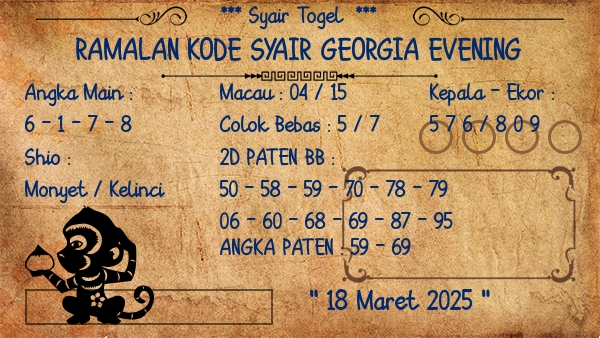 *** Syair Togel ***
RAMALAN KODE SYAIR GEORGIA EVENING
Angka Main :
6 - 1 - 7 - 8
Shio :
Monyet / Kelinci
Macau : 04 / 15
Colok Bebas : 5 / 7
2D PATEN BB :
50 - 58 - 59 - 70 - 78 - 79
06 - 60 - 68 - 69 - 87 - 95
ANGKA PATEN : 59 - 69
Kepala - Ekor :
5 7 6 / 8 0 9
" 18 Maret 2025 "